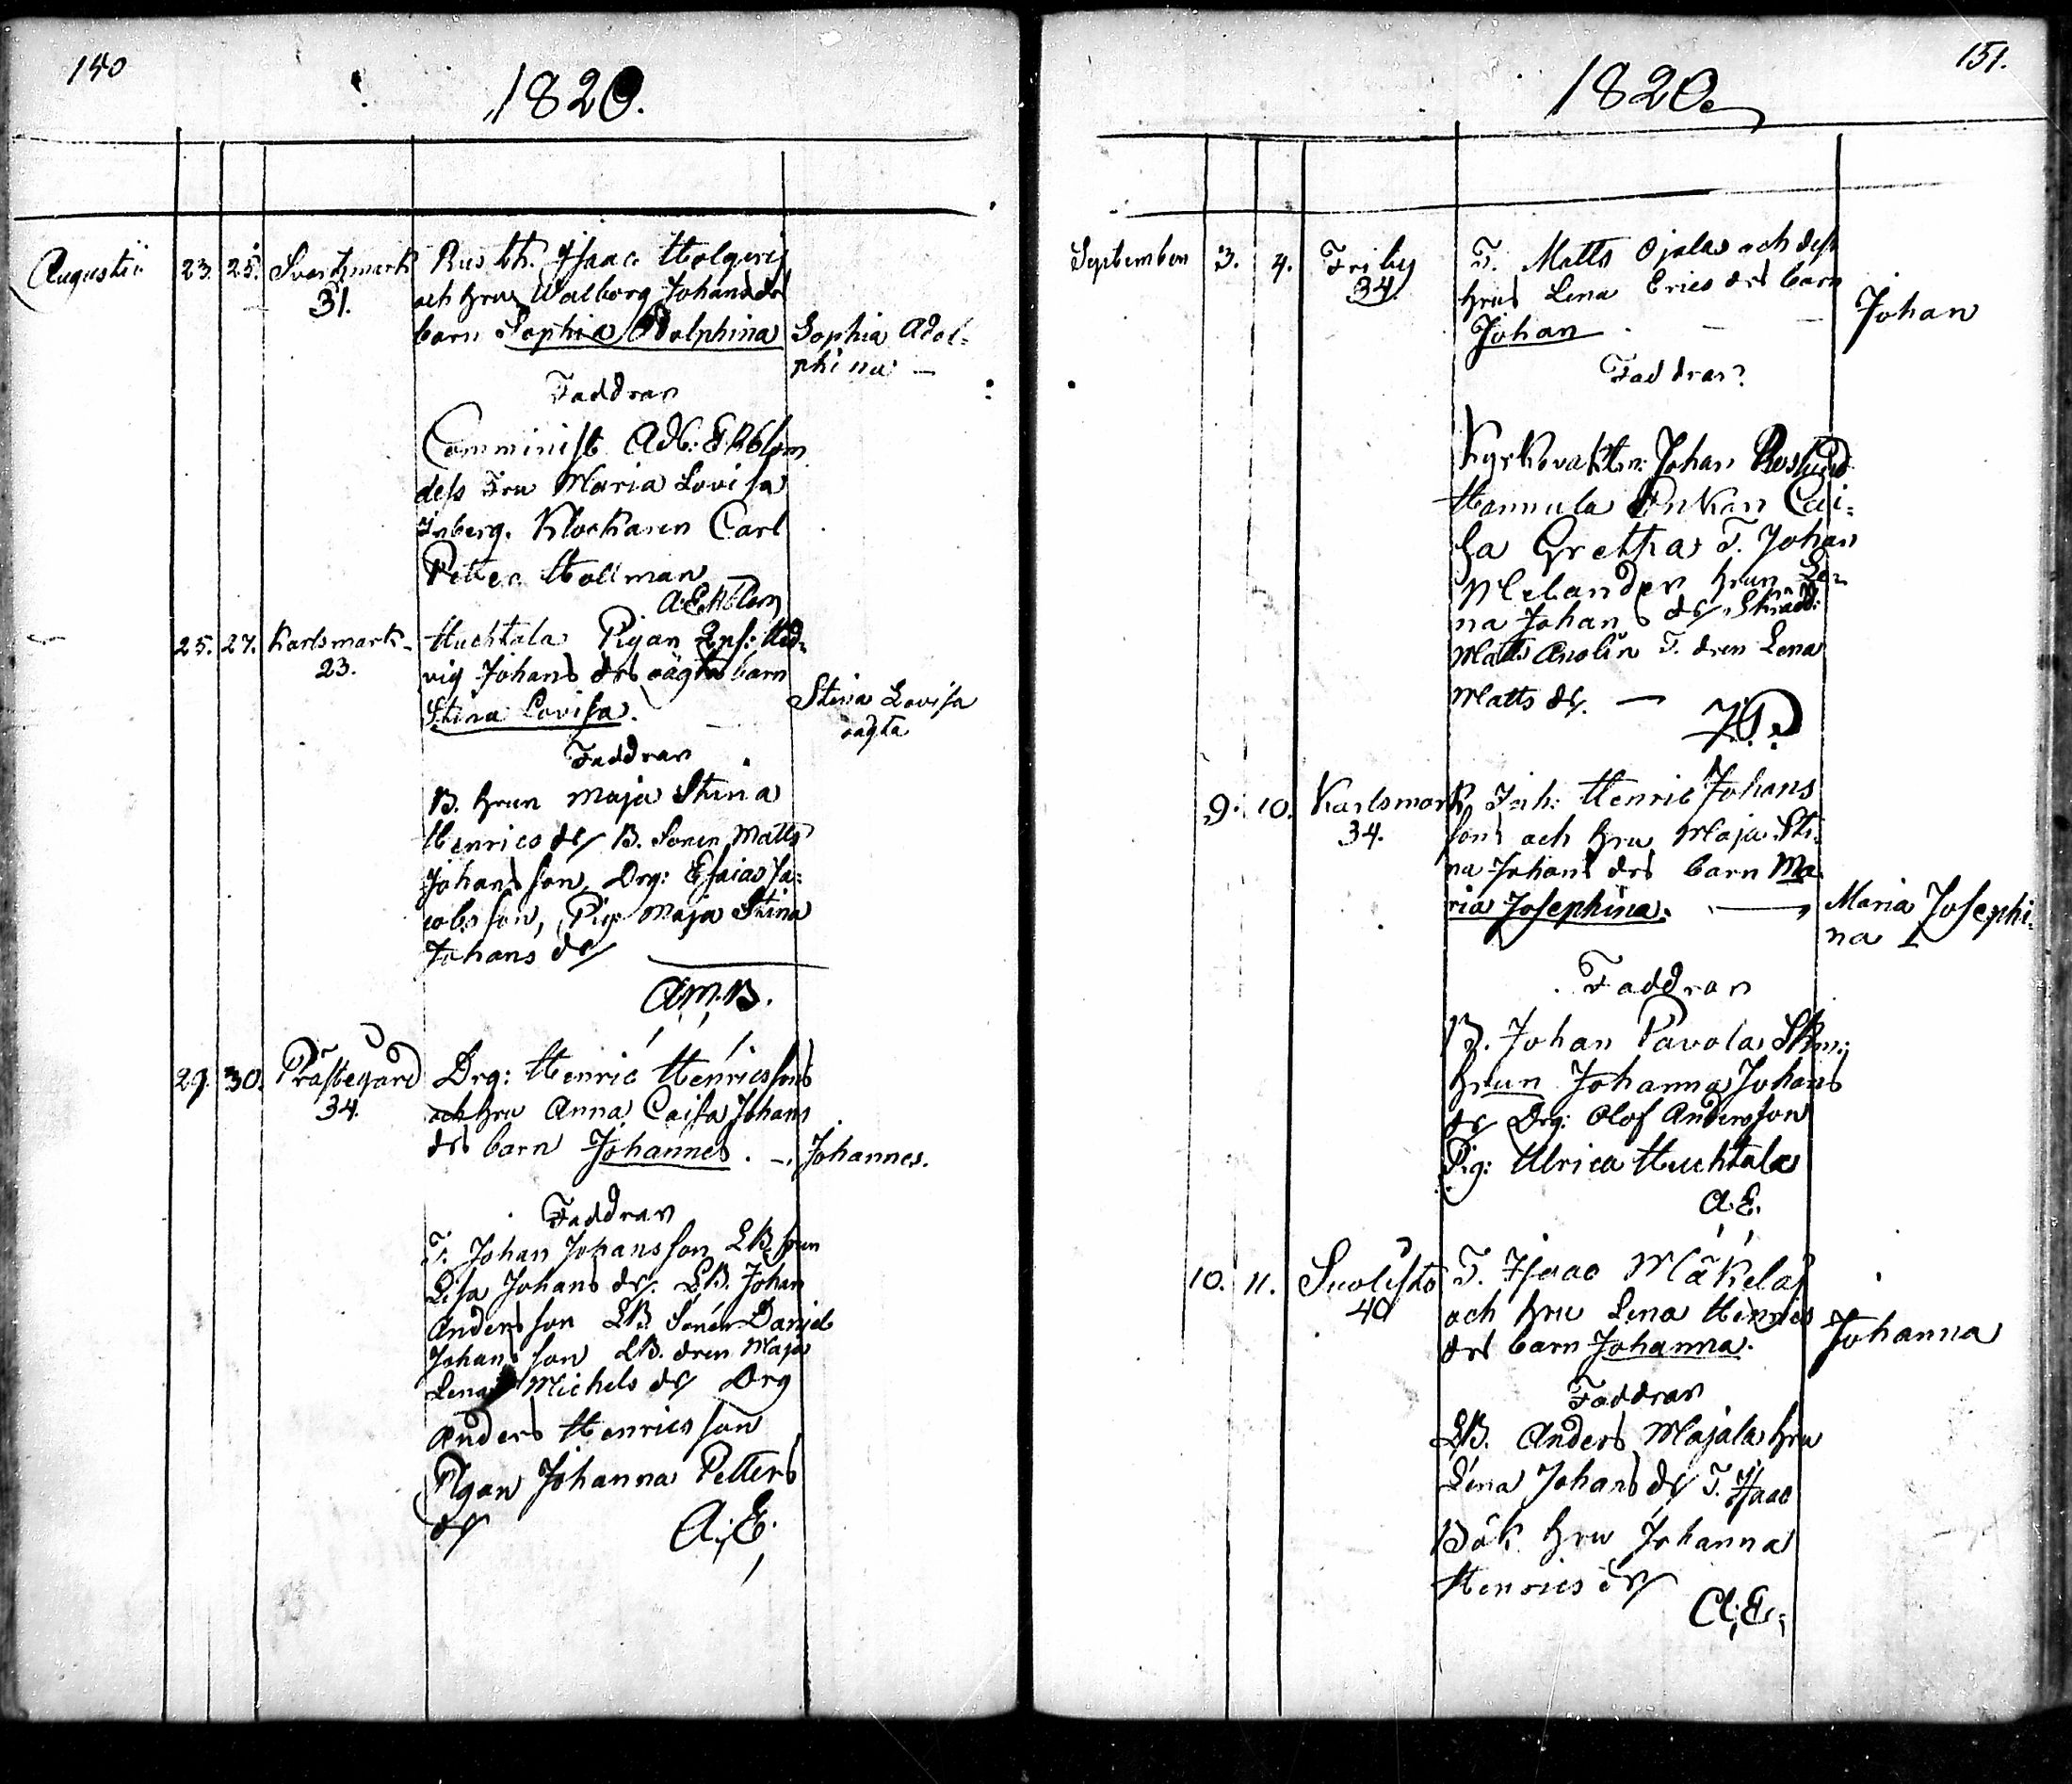 140
1820.
Augustii 23. 25. Svartsmark Rusth. Isaac Holgeris
31. och hru Walborg Johansdrs
barn Sophia Adolphina Sophia Adol=
phina —
Faddrar
Comminist. Ad6: Ekblom
dess Fru Maria Lovisa
Inberg. Klockaren Carl
Petter Hollman
A: Ekblom
25. 27. Karlsmark Huchtala Pigan Hed=
23. vig Johans drs oägta barn
Stina Lovisa. Stina Lovisa
oägta
Faddrar
B. hrun Maja Stina
Henrics dr B. Sonen Matts
Johansson, Drg: Esaias Ja=
cobsson, Pig. Maja Stina
Johans dr
A.M.B.
29. 30. Prästegård Drg: Henric Henricssons
34. och hru Anna Caisa Johans
drs barn Johannes. — Johannes.
Faddrar
T. Johan Johansson LB. hrun
Lisa Johans dr. LB. Johan
Andersson LB Sonen Daniel
Johansson LB. dren Maja
Lena Michels dr Drg
Anders Henricsson
Pigan Johanna Petters
dr A.E.
151.
1820
September 3. 4. Friby T. Matts Ojalas och dess
34. hrus Lena Erics drs barn
Johan — Johan
Faddrar
Kyrkovakten Johan Roslund
Hannula Enkan Cai=
sa Gretha T. Johan
Melander hrun Le=
na Johans dr Skrädd:
Matts Anolin T. dren Lena
Matts dr. —
9. 10. Karlsmark Inh: Henric Johans
34. sons och hru Maja Sti=
na Johans drs barn Ma
ria Josephina. — Maria Josephi=
na
Faddrar
B. Johan Pavola
hrun Johanna Johans
dr Drg: Olof Andersson
Pig: Ulrica Huchtala
A.E.
10. 11. Suolisto T. Isaac Mäkeläs
40 och hru Lena Henrics
drs barn Johanna. Johanna
Faddrar
LB. Anders Majala hru
Lena Johans dr T. Isaac
Bök hru Johanna
Henrics dr
A.E.